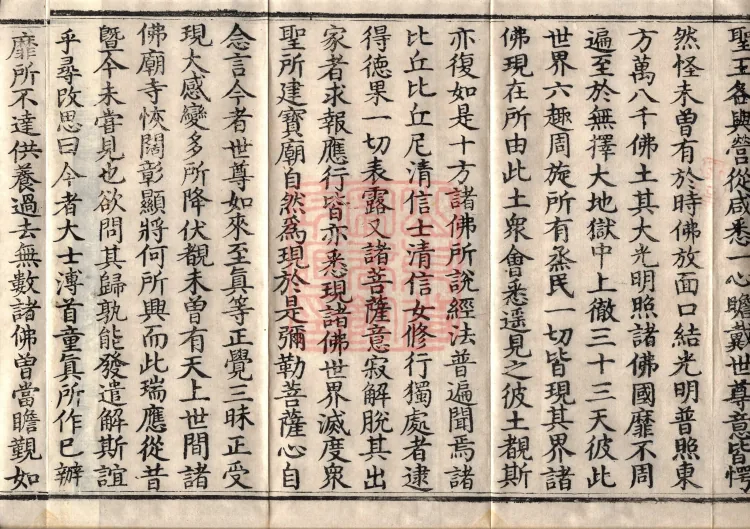 聖王各與營從咸悉一心瞻戴世尊意皆愕
然怪未曽有於時佛放面口結光明普照東
方萬八千佛土其大光明照諸佛國靡不周
遍至於無擇大地獄中上徹三十三天彼此
世界六趣周旋所有烝民一切皆現其界諸
佛現在所由此土衆會悉遥見之彼土覩斯
亦復如是十方諸佛所說經法普遍聞焉諸
比丘比丘尼清信士清信女修行獨處者逮
得德果一切表露又諸菩薩意寂解脫其出
家者求報應行皆亦悉現諸佛世界滅度衆
聖所建寶廟自然爲現於是彌勒菩薩心自
念言今者世尊如來至真等正覺三昧正受
現大感變多所降伏覩未曽有天上世間諸
佛廟寺恢闊彰顯將何所興而此瑞應從昔
暨今未甞見也欲問其歸孰能發遣解斯誼
乎尋改思曰今者大士溥首童真所作已辦
靡所不達供養過去無數諸佛曽當瞻覲如